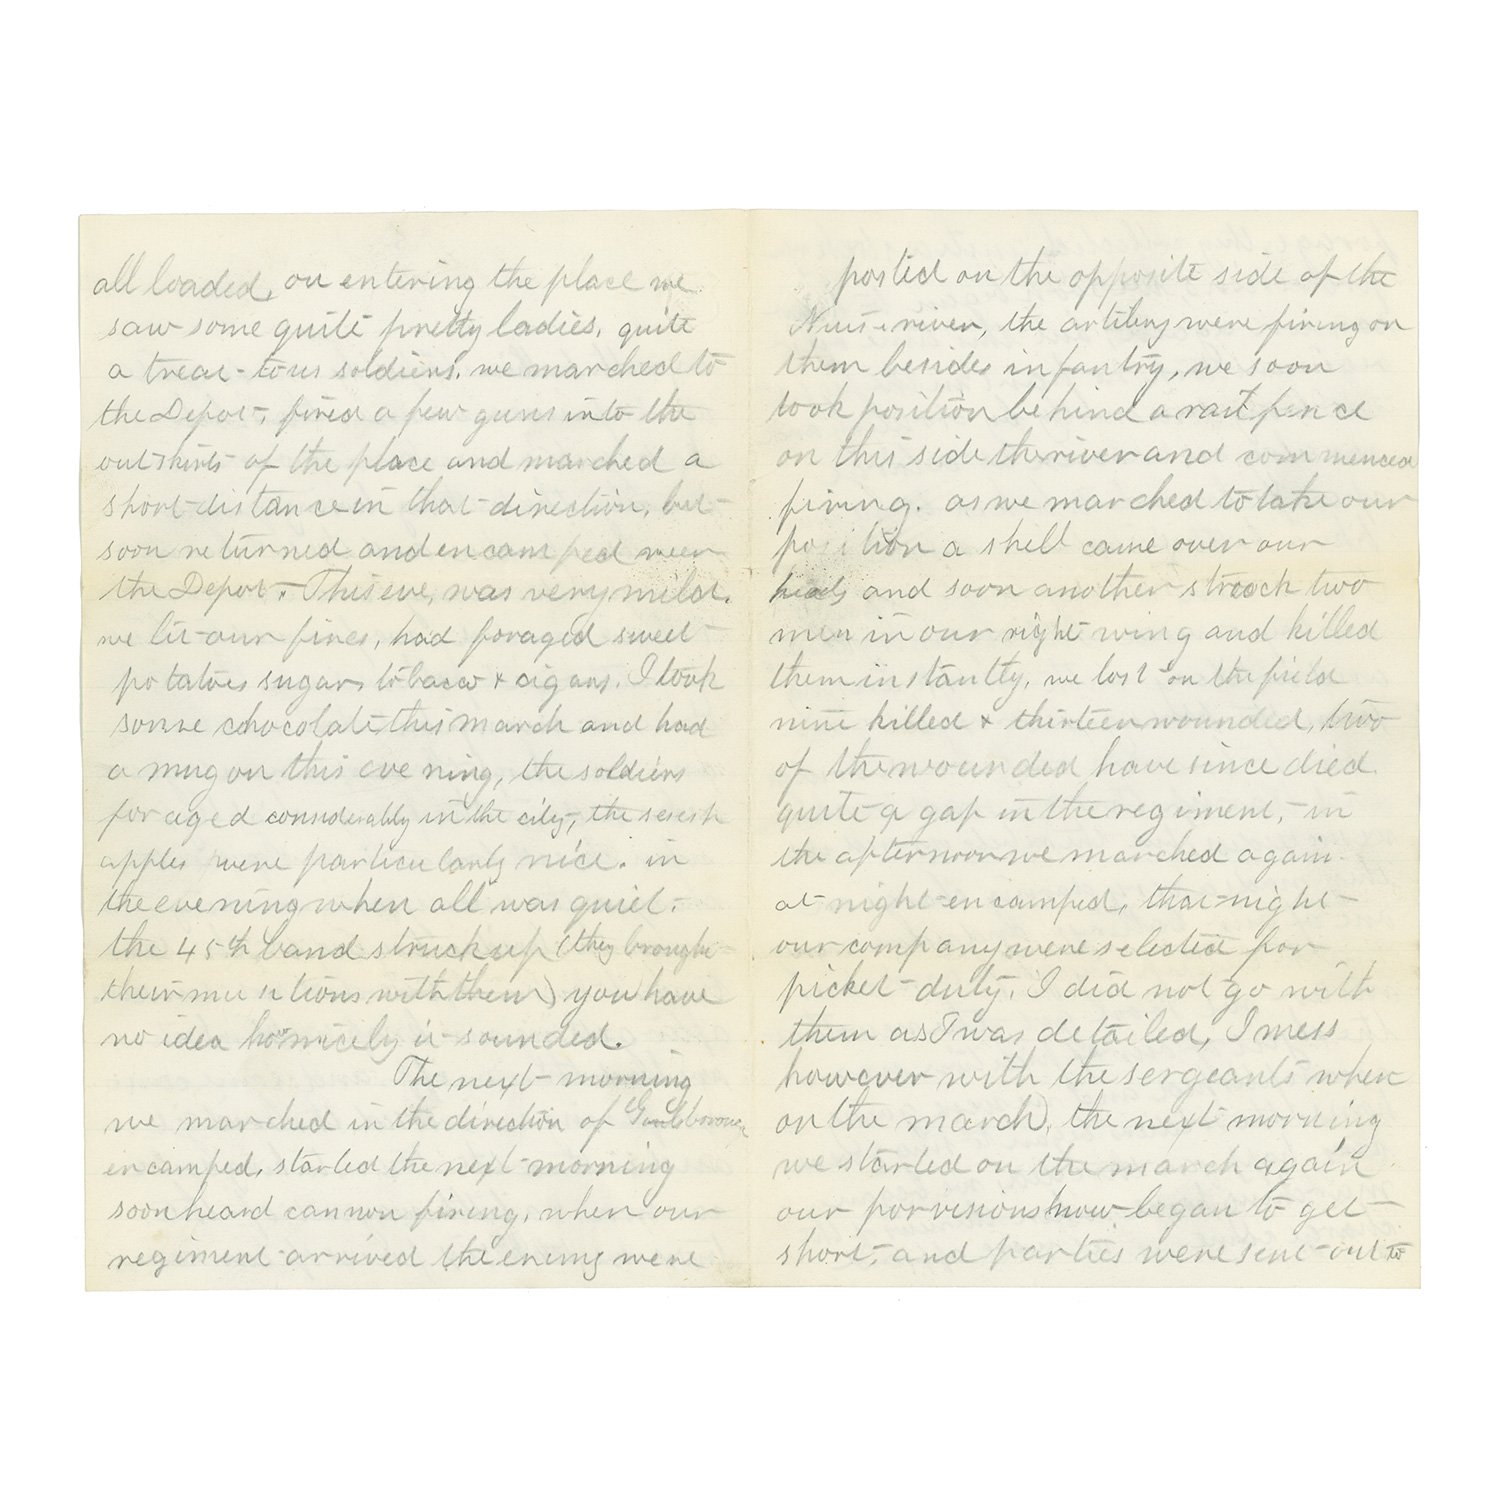 all loaded, on entering the place we
saw some quite pretty ladies, quite
a treat to us soldiers. we marched to
the Depot, fired a few guns into the
outskirts of the place and marched a
short distance in that direction, but
soon returned and encamped near
the Depot. This eve, was very mild.
we lit our fires, had foraged sweet
potatoes sugar, tobacco & cigars. I took
some chocolate this march and had
a mug on this evening, the soldiers
foraged considerably in the city, the secesh
apples were particularly nice. in
the evening when all was quiet,
the 45th band struck up (they brought
their musitions with them) you have
no idea how nicely it sounded.
The next morning
we marched in the direction of
encamped, started the next morning
soon heard cannon firing, when our
regiment arrived the enemy were
posted on the opposite side of the
river, the artilery were firing on
them besides infantry, we soon
took position behind a rail fence
on this side the river and commenced
firing. as we marched to take our
position a shell came over our
heads and soon another struck two
men in our right wing and killed
them instantly, we lost on the field
nine killed & thirteen wounded, two
of the wounded have since died
quite a gap in the regiment, in
the afternoon we marched again
at night encamped, that night
our company were selected for
picket duty, I did not go with
them as I was detailed, I mess
however with the sergeants when
on the march), the next morning
we started on the march again
our porvisions now began to get
short, and parties were sent out to